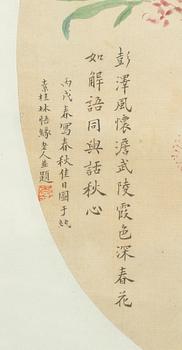 彭澤風懷澹武陵霞色深春花
如解語同與話秋心
丙戌春寫春秋佳日圖于
素桂林悟緣老人並題